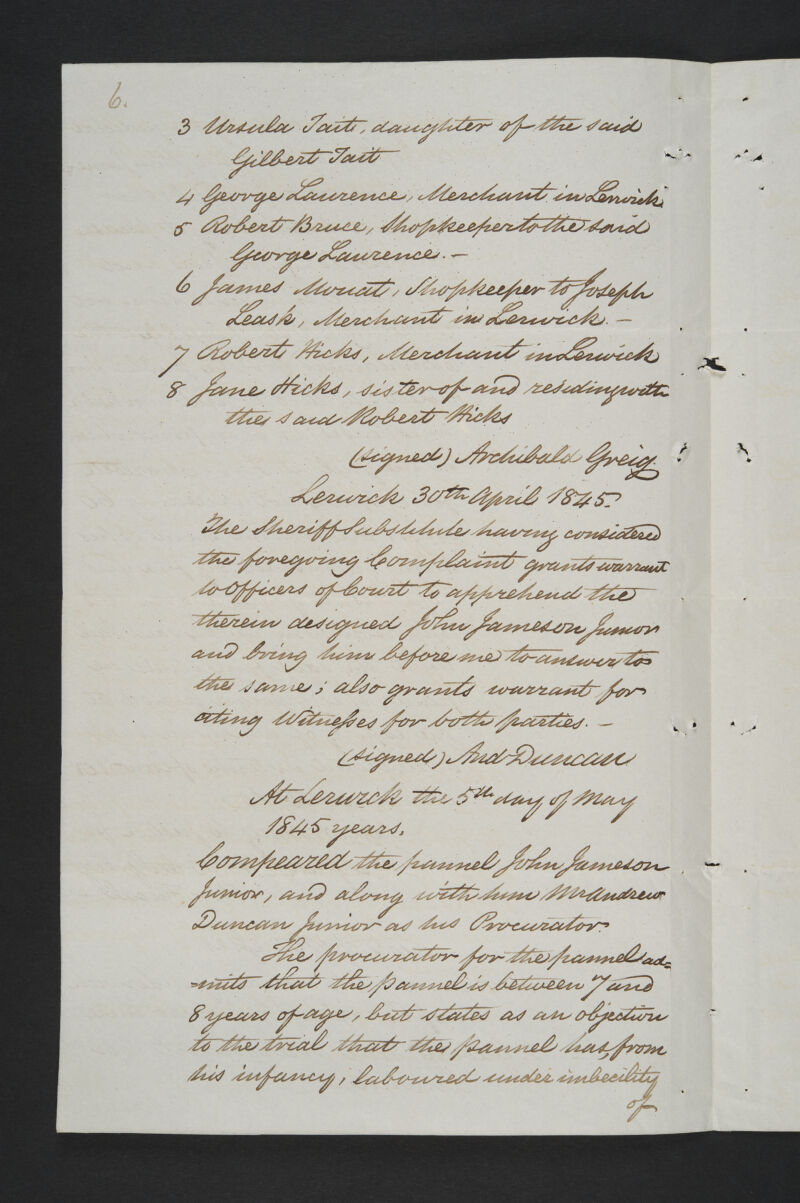 6.
3 Ursula Tait, daughter of the said
Gilbert Tait
4 George Laurence, Merchant in Lerwick
5 Robert Bruce, Shopkeeper to the said
George Laurence. -
6 James Mouat, Shopkeeper to Joseph
Leask, Merchant in Lerwick. -
7 Robert Hicks, Merchant in Lerwick
8 Jane Hicks, sister of and residing with
the said Robert Hicks
(signed) Archibald Greig.
Lerwick 30th April 1845.
The Sheriff Substitute having considered
the foregoing Complaint grants warrant
to Officers of Court to apprehend the
therein designed John Jameson Junior
and bring him before me to answer to
the same; also grants warrant for
citing Witnesses for both parties. -
(signed) And Duncan
At Lerwick the 5th day of May
1845 years.
Compeared the pannel John Jameson
Junior, and along with him Mr Andrew
Duncan Junior as his Procurator.
The procurator for the pannel ad=
=mits that the pannel is between 7 and
8 years of age, but states as an objection
to the trial that the pannel has, from
his infancy, laboured under imbecility
of